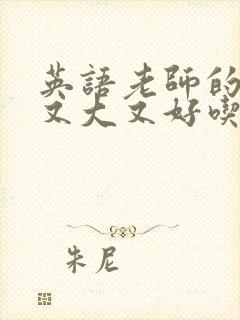 英語老師的
又大又好喫
朱尼